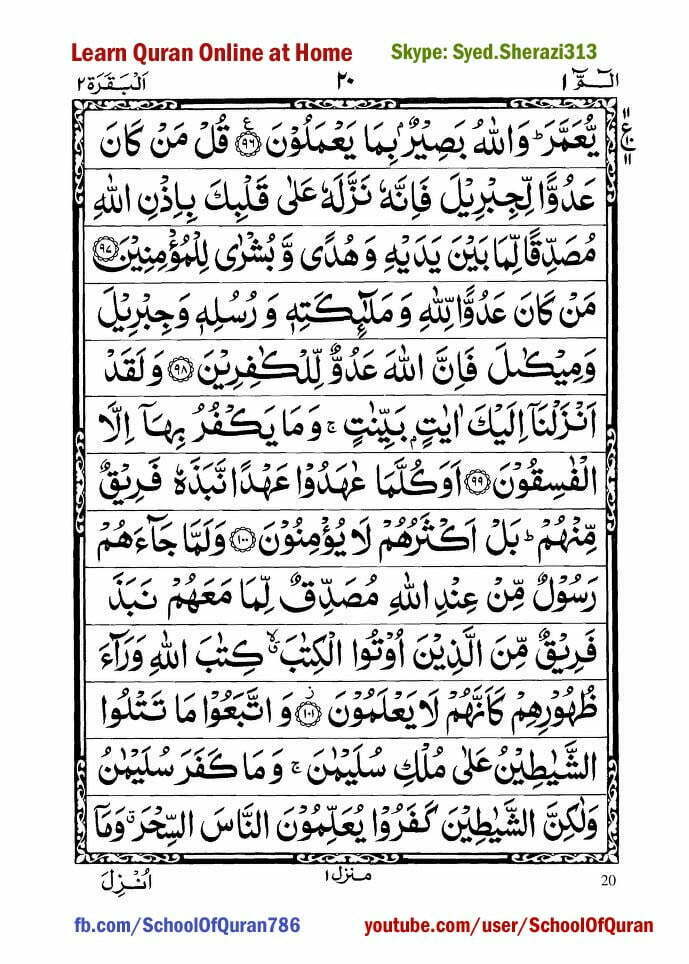 Learn Quran Online at Home Skype: Syed.Sherazi313
الٓمّٓ ۱ ۲۰ اَلْبَقَرَة ۲
یُّعَمَّرَ ؕ وَاللّٰهُ بَصِیْرٌۢ بِمَا یَعْمَلُوْنَ ﴿۹۶﴾ ع قُلْ مَنْ كَانَ
ع
۱۱
۱۰
۱۱
عَدُوًّا لِّجِبْرِیْلَ فَاِنَّهٗ نَزَّلَهٗ عَلٰی قَلْبِكَ بِاِذْنِ اللّٰهِ
مُصَدِّقًا لِّمَا بَیْنَ یَدَیْهِ وَ هُدًی وَّ بُشْرٰی لِلْمُؤْمِنِیْنَ ﴿۹۷﴾
مَنْ كَانَ عَدُوًّا لِّلّٰهِ وَ مَلٰٓئِكَتِهٖ وَ رُسُلِهٖ وَ جِبْرِیْلَ
وَ مِیْكٰىلَ فَاِنَّ اللّٰهَ عَدُوٌّ لِّلْكٰفِرِیْنَ ﴿۹۸﴾ وَ لَقَدْ
اَنْزَلْنَاۤ اِلَیْكَ اٰیٰتٍۭ بَیِّنٰتٍ ۚ وَ مَا یَكْفُرُ بِهَاۤ اِلَّا
الْفٰسِقُوْنَ ﴿۹۹﴾ اَوَ كُلَّمَا عٰهَدُوْا عَهْدًا نَّبَذَهٗ فَرِیْقٌ
مِّنْهُمْ ؕ بَلْ اَكْثَرُهُمْ لَا یُؤْمِنُوْنَ ﴿۱۰۰﴾ وَلَمَّا جَآءَهُمْ
رَسُوْلٌ مِّنْ عِنْدِ اللّٰهِ مُصَدِّقٌ لِّمَا مَعَهُمْ نَبَذَ
فَرِیْقٌ مِّنَ الَّذِیْنَ اُوْتُوا الْكِتٰبَ ۙۗ كِتٰبَ اللّٰهِ وَرَآءَ
ظُهُوْرِهِمْ كَاَنَّهُمْ لَا یَعْلَمُوْنَ ﴿۱۰۱﴾ ز وَ اتَّبَعُوْا مَا تَتْلُوا
الشَّیٰطِیْنُ عَلٰی مُلْكِ سُلَیْمٰنَ ۚ وَ مَا كَفَرَ سُلَیْمٰنُ
وَلٰكِنَّ الشَّیٰطِیْنَ كَفَرُوْا یُعَلِّمُوْنَ النَّاسَ السِّحْرَ ۗ وَمَاۤ
20 منزل ۱ اُنْزِلَ
fb.com/SchoolOfQuran786 youtube.com/user/SchoolOfQuran